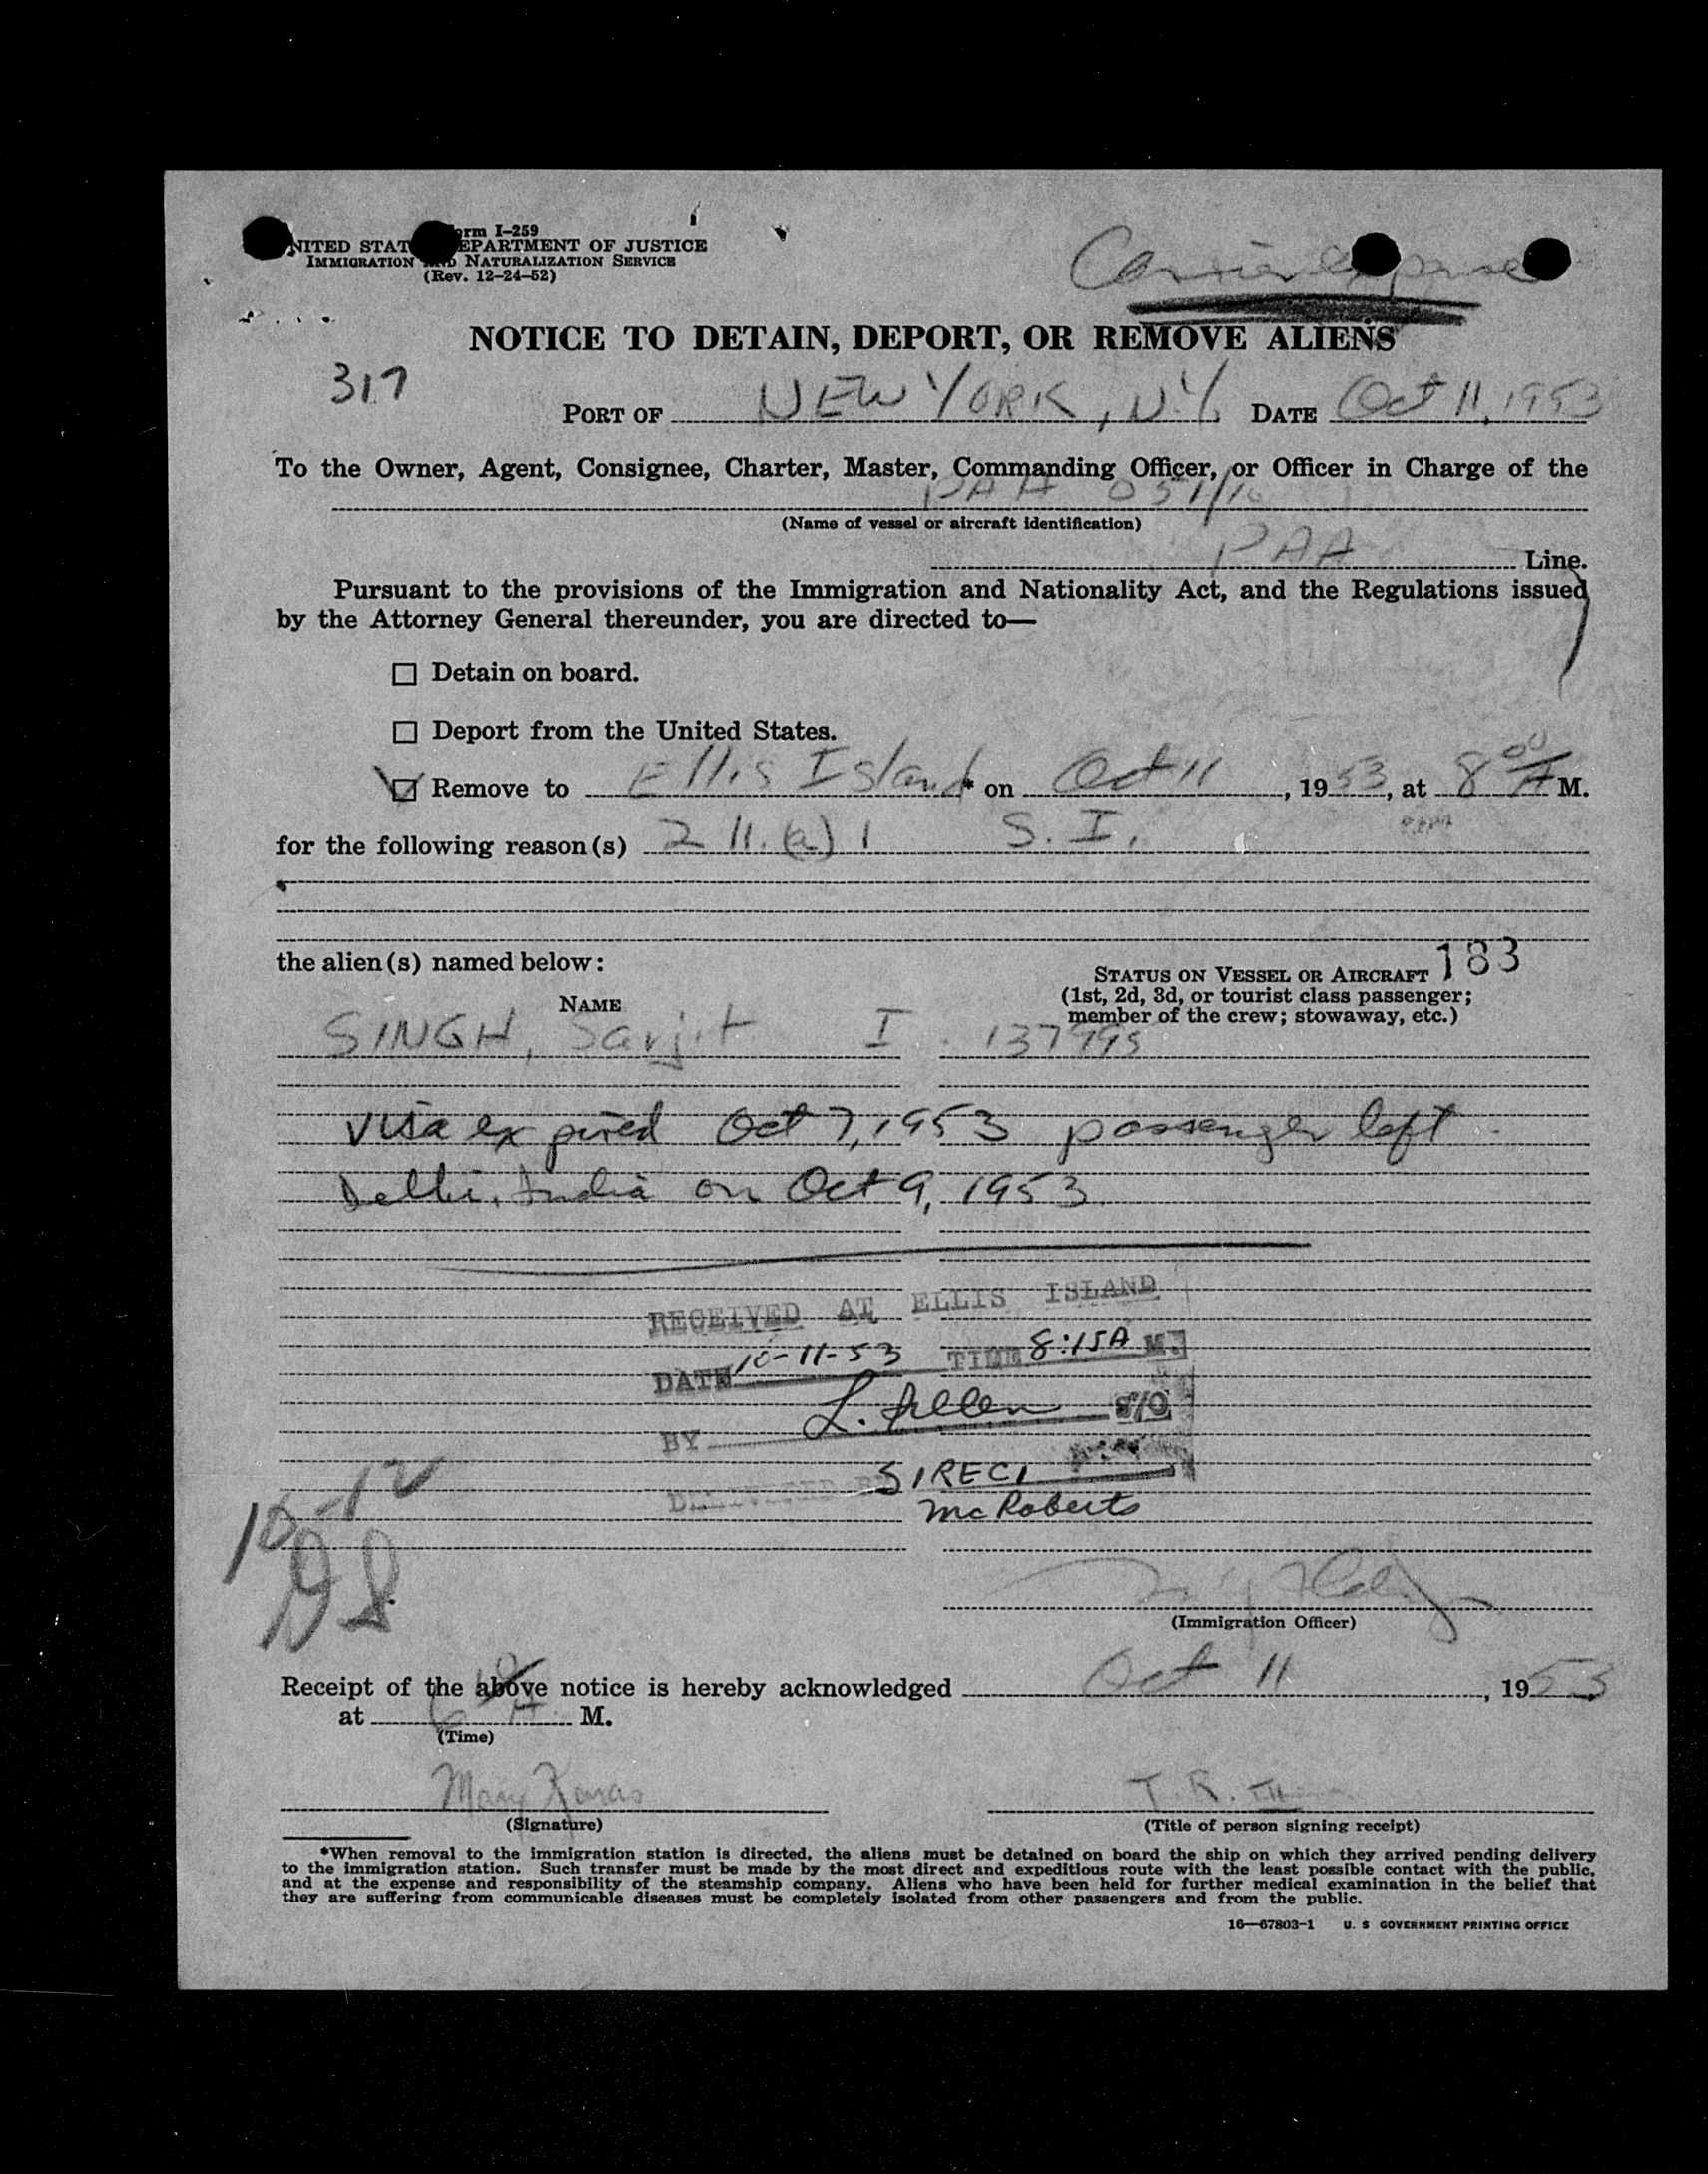 Form I-259
UNITED STATES DEPARTMENT OF JUSTICE
IMMIGRATION AND NATURALIZATION SERVICE
(Rev. 12-24-52)
Carrier expense
NOTICE TO DETAIN, DEPORT, OR REMOVE ALIENS
317
PORT OF NEW YORK, N.Y. DATE Oct 11, 1953
To the Owner, Agent, Consignee, Charter, Master, Commanding Officer, or Officer in Charge of the
PAA 051/10
(Name of vessel or aircraft identification)
PAA Line.
Pursuant to the provisions of the Immigration and Nationality Act, and the Regulations issued
by the Attorney General thereunder, you are directed to—
Detain on board.
Deport from the United States.
Remove to Ellis Island * on Oct 11, 1953, at 8 00 A M.
for the following reason(s) 211.(a) 1 S. I.
the alien(s) named below:
183
STATUS ON VESSEL OR AIRCRAFT
NAME
(1st, 2d, 3d, or tourist class passenger;
member of the crew; stowaway, etc.)
SINGH, Sarjit I 137995
visa expired Oct 7, 1953 passenger left
Delhi, India on Oct 9, 1953.
RECEIVED AT ELLIS ISLAND
DATE 10-11-53 TIME 8:15A M.
BY L. Allen S/O
DELIVERED BY SIRECI
McRoberts
10-12
(Immigration Officer)
Receipt of the above notice is hereby acknowledged Oct 11, 1953
at 6 A. M.
(Time)
Mary
(Signature)
T. R.
(Title of person signing receipt)
*When removal to the immigration station is directed, the aliens must be detained on board the ship on which they arrived pending delivery
to the immigration station. Such transfer must be made by the most direct and expeditious route with the least possible contact with the public,
and at the expense and responsibility of the steamship company. Aliens who have been held for further medical examination in the belief that
they are suffering from communicable diseases must be completely isolated from other passengers and from the public.
16—67803-1 U. S GOVERNMENT PRINTING OFFICE